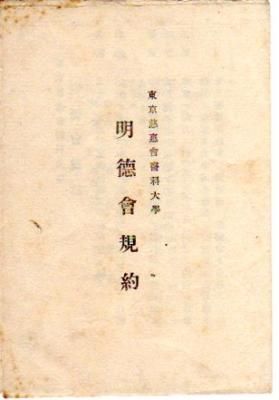 東京慈惠會醫科大學
明德會規約